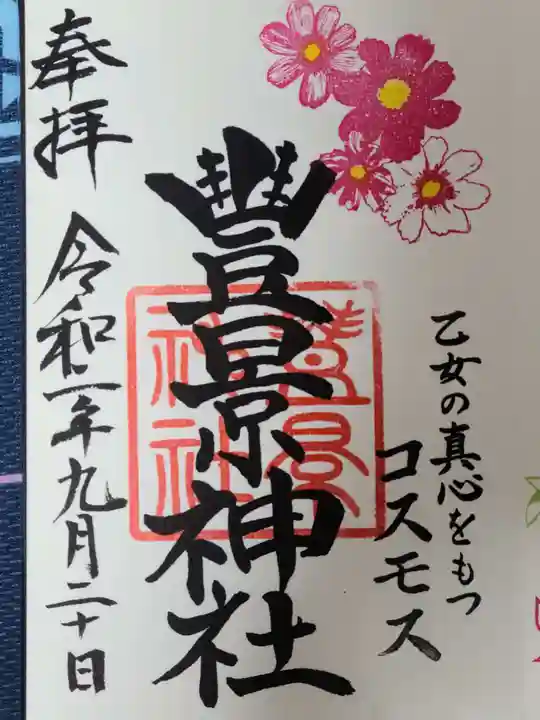 乙女の真心をもつ
コスモス
豐景神社
豐景
神社
奉拝
令和一年九月二十日